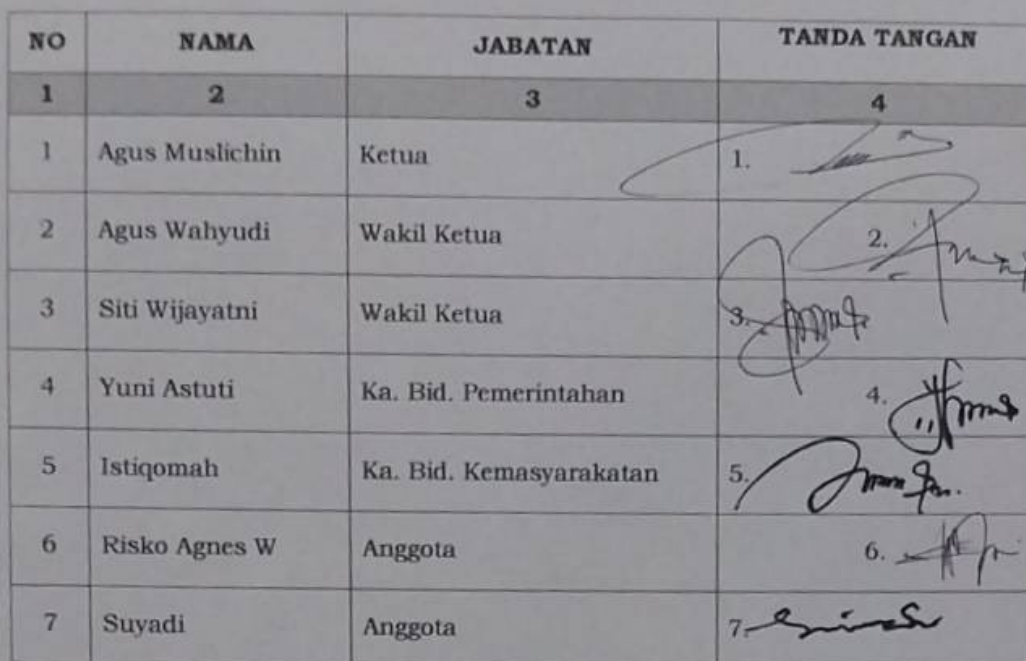 NO NAMA JABATAN TANDA TANGAN
1 2 3 4
1 Agus Muslichin Ketua 1.
2 Agus Wahyudi Wakil Ketua 2.
3 Siti Wijayatni Wakil Ketua 3.
4 Yuni Astuti Ka. Bid. Pemerintahan 4.
5 Istiqomah Ka. Bid. Kemasyarakatan 5.
6 Risko Agnes W Anggota 6.
7 Suyadi Anggota 7.